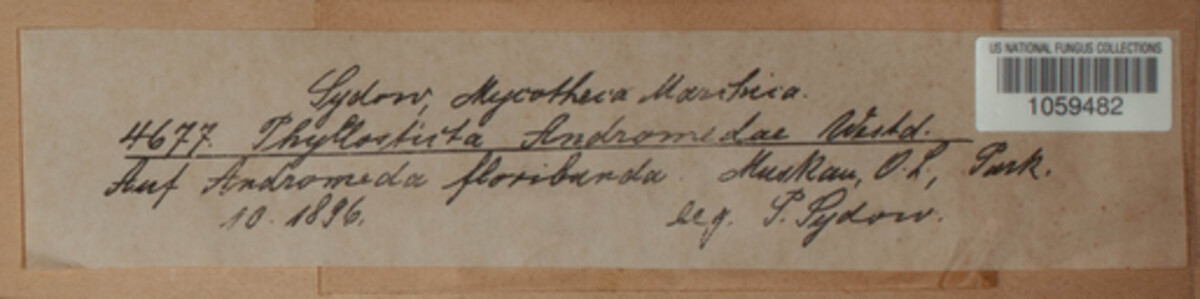 US NATIONAL FUNGUS COLLECTIONS
1059482
Sydow, Mycotheca Marchica.
4677. Phyllosticta Andromedae Westd.
Auf Andromeda floribunda. Muskau, O. L., Park.
10. 1896. leg. P. Sydow.